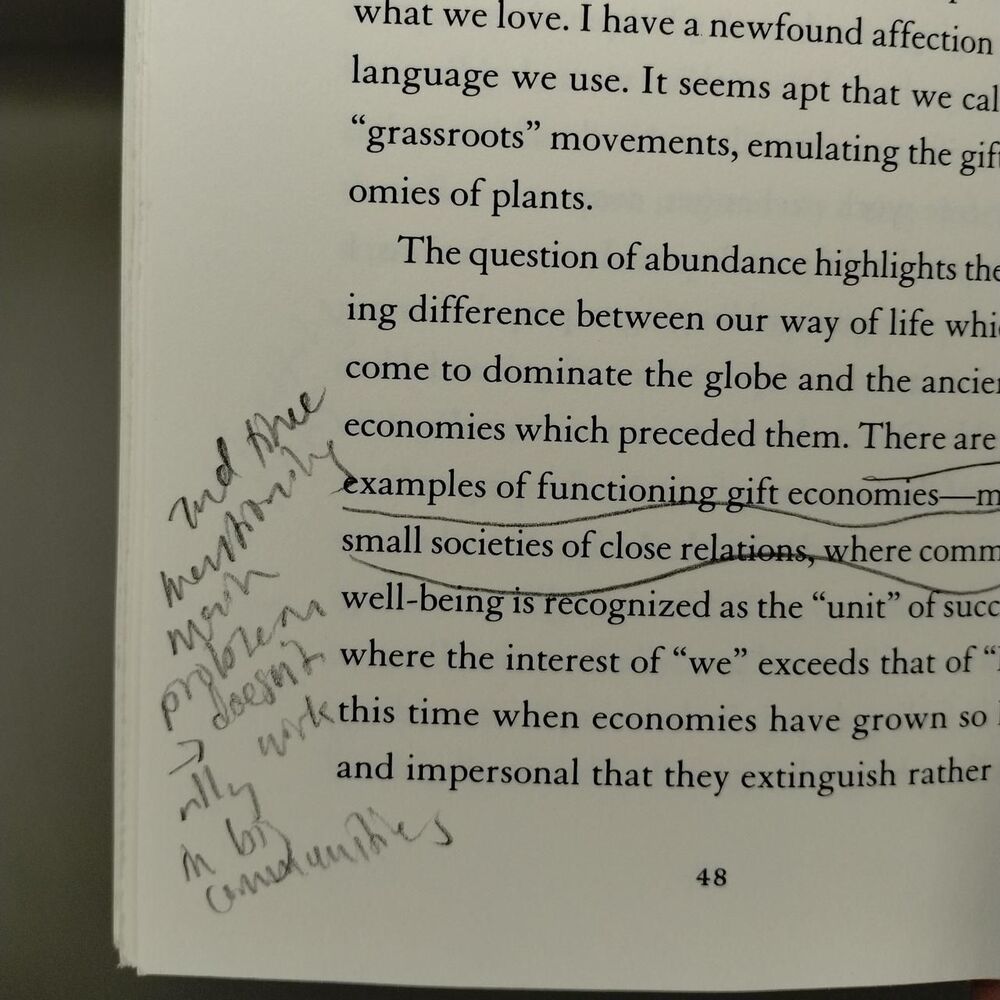 what we love. I have a newfound affection
language we use. It seems apt that we cal
“grassroots” movements, emulating the gif
omies of plants.
The question of abundance highlights the
ing difference between our way of life whi
come to dominate the globe and the ancien
economies which preceded them. There are
examples of functioning gift economies—m
small societies of close relations, where comm
well-being is recognized as the “unit” of succ
where the interest of “we” exceeds that of “
this time when economies have grown so
and impersonal that they extinguish rather
48
and
problem
→ doesn't
work
rlly
in big
communities